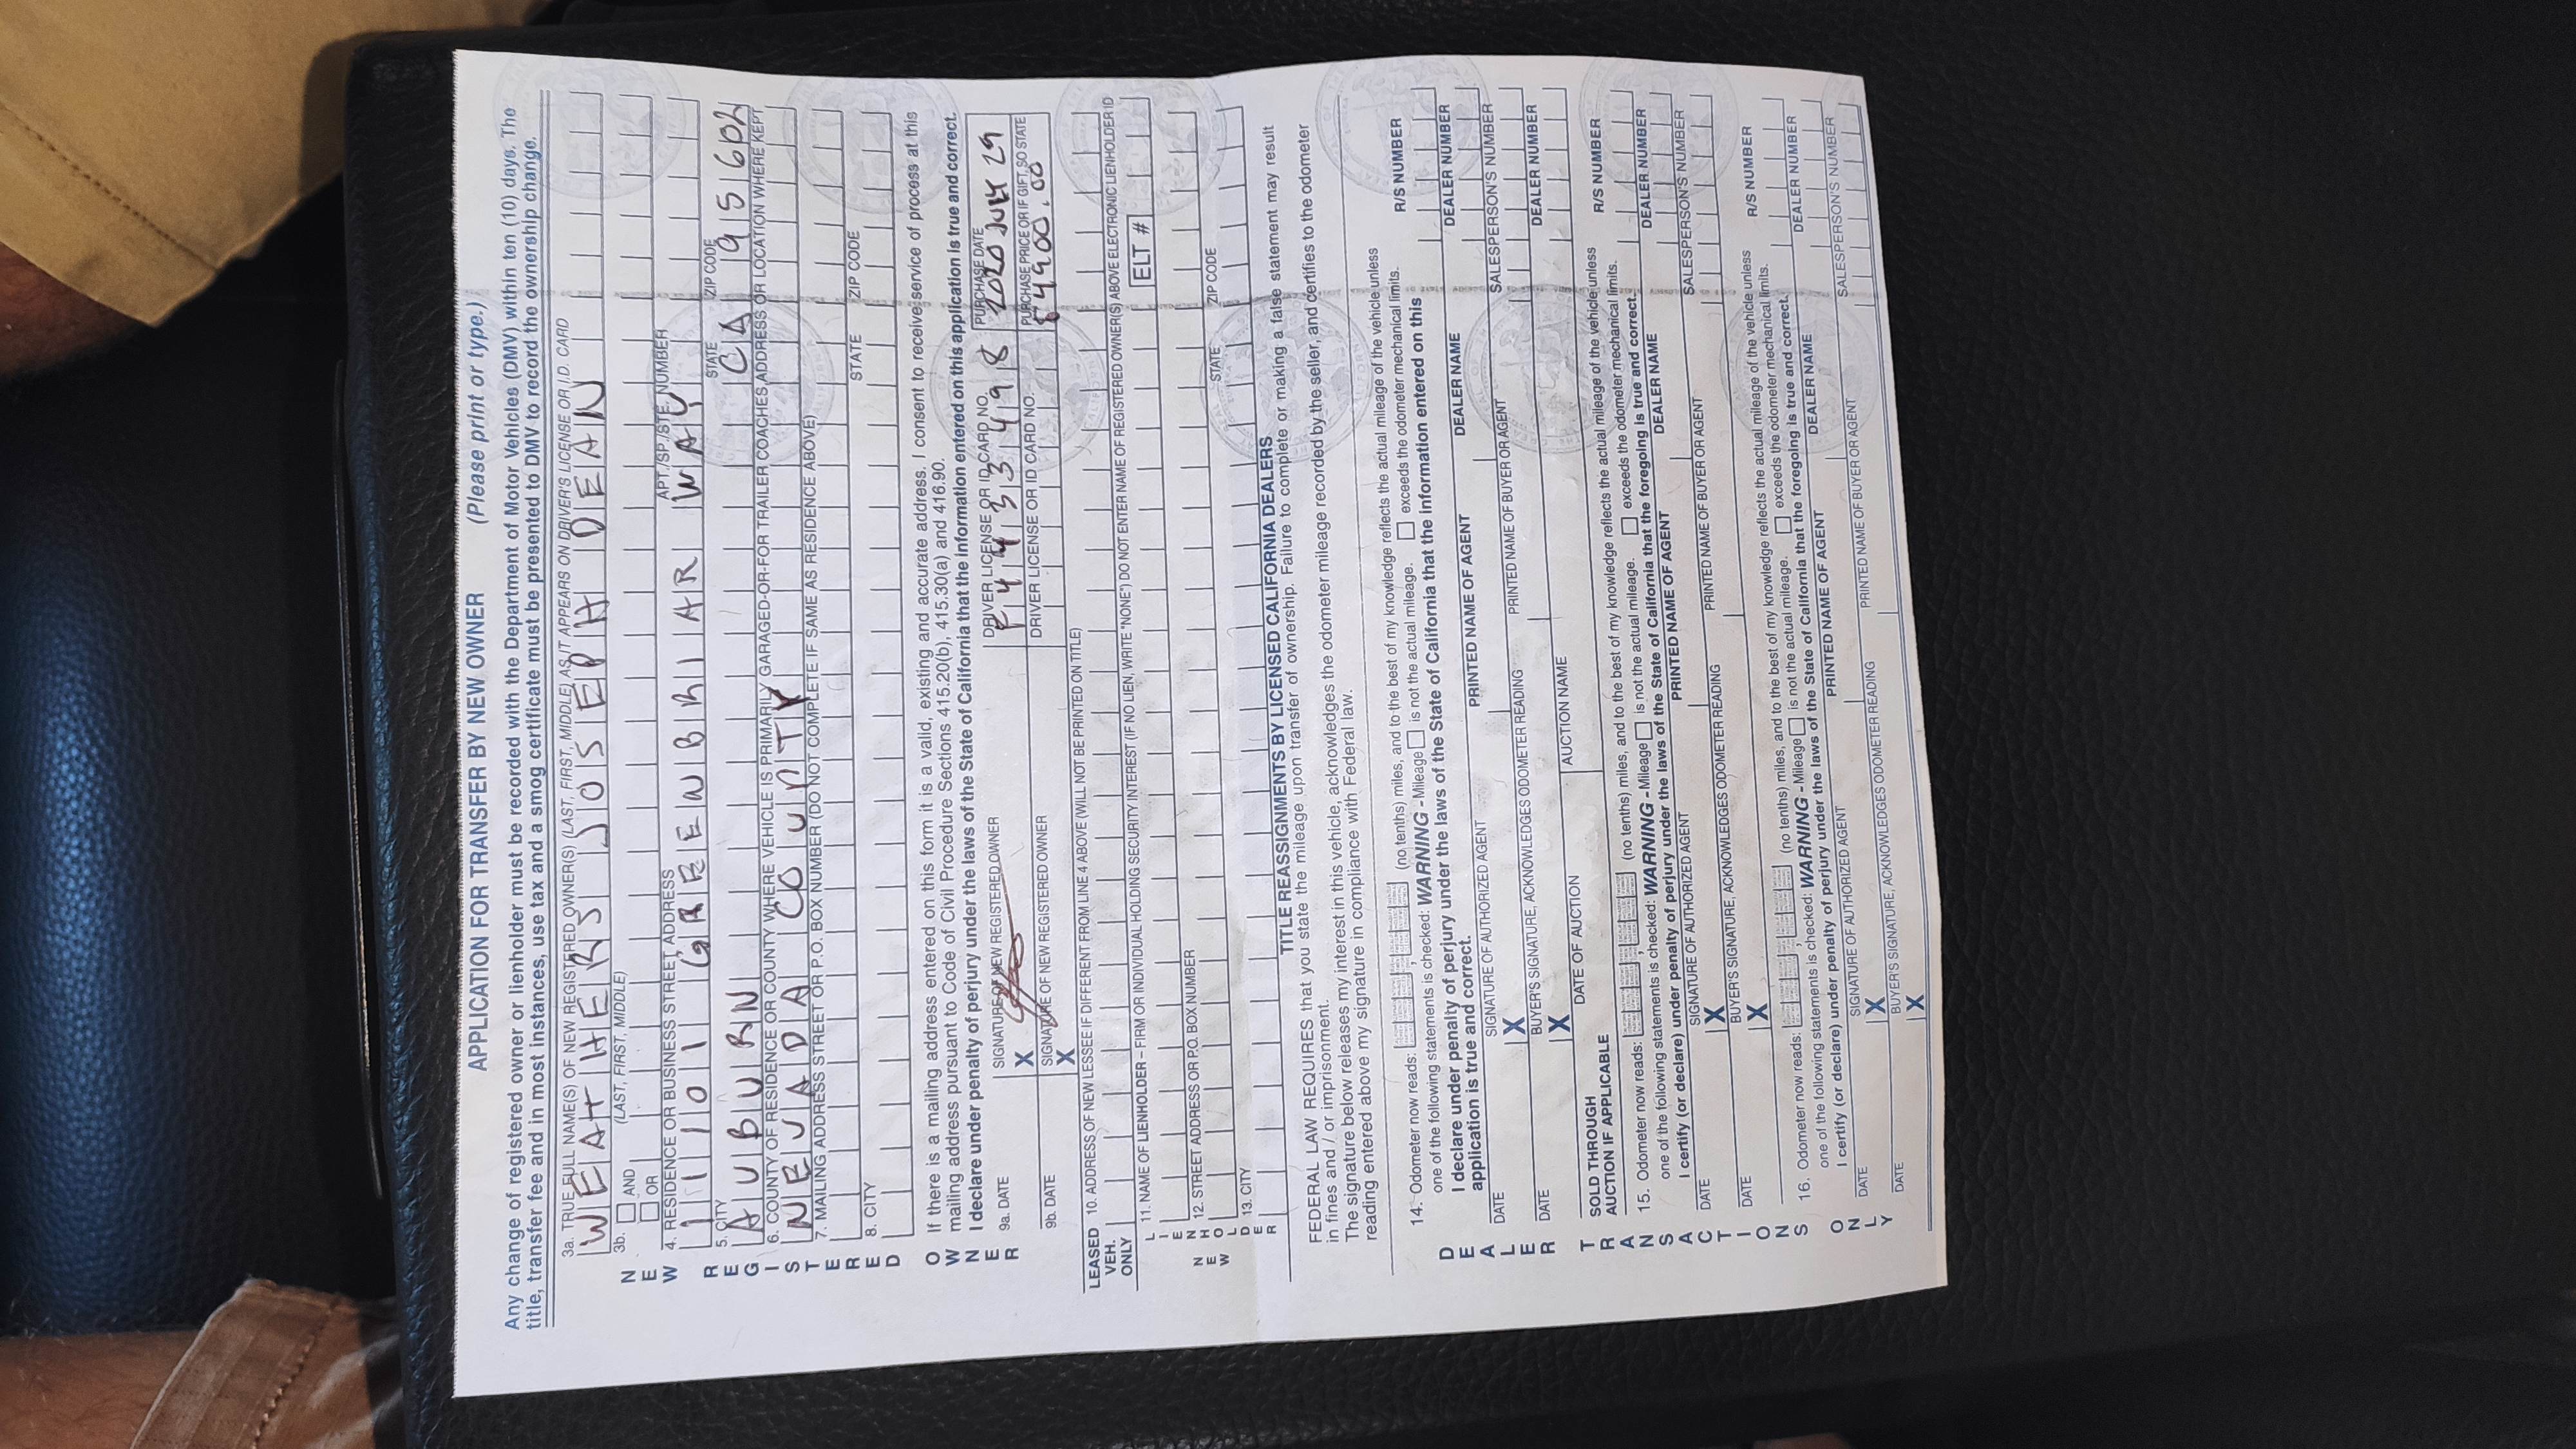 APPLICATION FOR TRANSFER BY NEW OWNER (Please print or type.)
Any change of registered owner or lienholder must be recorded with the Department of Motor Vehicles (DMV) within ten (10) days. The
title, transfer fee and in most instances, use tax and a smog certificate must be presented to DMV to record the ownership change.
3a. TRUE FULL NAME(S) OF NEW REGISTERED OWNER(S) (LAST, FIRST, MIDDLE) AS IT APPEARS ON DRIVER'S LICENSE OR I.D. CARD
WEATHERS JOSEPH DEAN
3b. AND (LAST, FIRST, MIDDLE)
OR
4. RESIDENCE OR BUSINESS STREET ADDRESS APT./SP./STE. NUMBER
11101 GREWBRIAR WAY
5. CITY STATE ZIP CODE
AUBURN CA 95602
6. COUNTY OF RESIDENCE OR COUNTY WHERE VEHICLE IS PRIMARILY GARAGED-OR-FOR TRAILER COACHES, ADDRESS OR LOCATION WHERE KEPT
NEVADA COUNTY
7. MAILING ADDRESS STREET OR P.O. BOX NUMBER (DO NOT COMPLETE IF SAME AS RESIDENCE ABOVE)
8. CITY STATE ZIP CODE
NEW REGISTERED OWNER
If there is a mailing address entered on this form it is a valid, existing and accurate address. I consent to receive service of process at this
mailing address pursuant to Code of Civil Procedure Sections 415.20(b), 415.30(a) and 416.90.
I declare under penalty of perjury under the laws of the State of California that the information entered on this application is true and correct.
9a. DATE SIGNATURE OF NEW REGISTERED OWNER DRIVER LICENSE OR ID CARD NO. PURCHASE DATE
X F4433498 2020 JULY 29
9b. DATE SIGNATURE OF NEW REGISTERED OWNER DRIVER LICENSE OR ID CARD NO. PURCHASE PRICE OR IF GIFT, SO STATE
X 4900.00
LEASED VEH. ONLY
10. ADDRESS OF NEW LESSEE IF DIFFERENT FROM LINE 4 ABOVE (WILL NOT BE PRINTED ON TITLE)
11. NAME OF LIENHOLDER – FIRM OR INDIVIDUAL HOLDING SECURITY INTEREST (IF NO LIEN, WRITE "NONE") DO NOT ENTER NAME OF REGISTERED OWNER(S) ABOVE ELECTRONIC LIENHOLDER ID
ELT #
NEW LIENHOLDER
12. STREET ADDRESS OR P.O. BOX NUMBER
13. CITY STATE ZIP CODE
TITLE REASSIGNMENTS BY LICENSED CALIFORNIA DEALERS
FEDERAL LAW REQUIRES that you state the mileage upon transfer of ownership. Failure to complete or making a false statement may result
in fines and / or imprisonment.
The signature below releases my interest in this vehicle, acknowledges the odometer mileage recorded by the seller, and certifies to the odometer
reading entered above my signature in compliance with Federal law.
DEALER TRANSACTIONS ONLY
14. Odometer now reads: , (no tenths) miles, and to the best of my knowledge reflects the actual mileage of the vehicle unless
one of the following statements is checked: WARNING - Mileage is not the actual mileage. exceeds the odometer mechanical limits. R/S NUMBER
I declare under penalty of perjury under the laws of the State of California that the information entered on this
application is true and correct. PRINTED NAME OF AGENT DEALER NAME DEALER NUMBER
DATE SIGNATURE OF AUTHORIZED AGENT
X PRINTED NAME OF BUYER OR AGENT SALESPERSON'S NUMBER
DATE BUYER'S SIGNATURE, ACKNOWLEDGES ODOMETER READING DEALER NUMBER
X
SOLD THROUGH AUCTION IF APPLICABLE DATE OF AUCTION AUCTION NAME
15. Odometer now reads: , (no tenths) miles, and to the best of my knowledge reflects the actual mileage of the vehicle unless R/S NUMBER
one of the following statements is checked: WARNING - Mileage is not the actual mileage. exceeds the odometer mechanical limits.
I certify (or declare) under penalty of perjury under the laws of the State of California that the foregoing is true and correct.
DATE SIGNATURE OF AUTHORIZED AGENT PRINTED NAME OF AGENT DEALER NAME DEALER NUMBER
X
DATE BUYER'S SIGNATURE, ACKNOWLEDGES ODOMETER READING PRINTED NAME OF BUYER OR AGENT SALESPERSON'S NUMBER
X
16. Odometer now reads: , (no tenths) miles, and to the best of my knowledge reflects the actual mileage of the vehicle unless R/S NUMBER
one of the following statements is checked: WARNING - Mileage is not the actual mileage. exceeds the odometer mechanical limits.
I certify (or declare) under penalty of perjury under the laws of the State of California that the foregoing is true and correct.
DATE SIGNATURE OF AUTHORIZED AGENT PRINTED NAME OF AGENT DEALER NAME DEALER NUMBER
X
DATE BUYER'S SIGNATURE, ACKNOWLEDGES ODOMETER READING PRINTED NAME OF BUYER OR AGENT SALESPERSON'S NUMBER
X